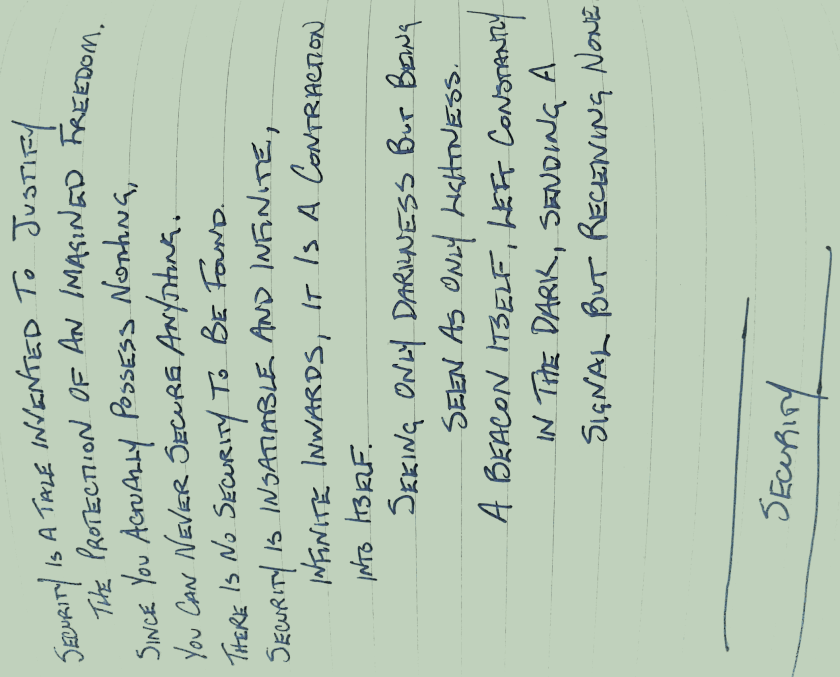 SECURITY IS A TALE INVENTED TO JUSTIFY
THE PROTECTION OF AN IMAGINED FREEDOM.
SINCE YOU ACTUALLY POSSESS NOTHING,
YOU CAN NEVER SECURE ANYTHING.
THERE IS NO SECURITY TO BE FOUND.
SECURITY IS INSATIABLE AND INFINITE,
INFINITE INWARDS, IT IS A CONTRACTION
INTO ITSELF.
SEEING ONLY DARKNESS BUT BEING
SEEN AS ONLY LIGHTNESS.
A BEACON ITSELF, LEFT CONSTANTLY
IN THE DARK, SENDING A
SIGNAL BUT RECEIVING NONE.
SECURITY